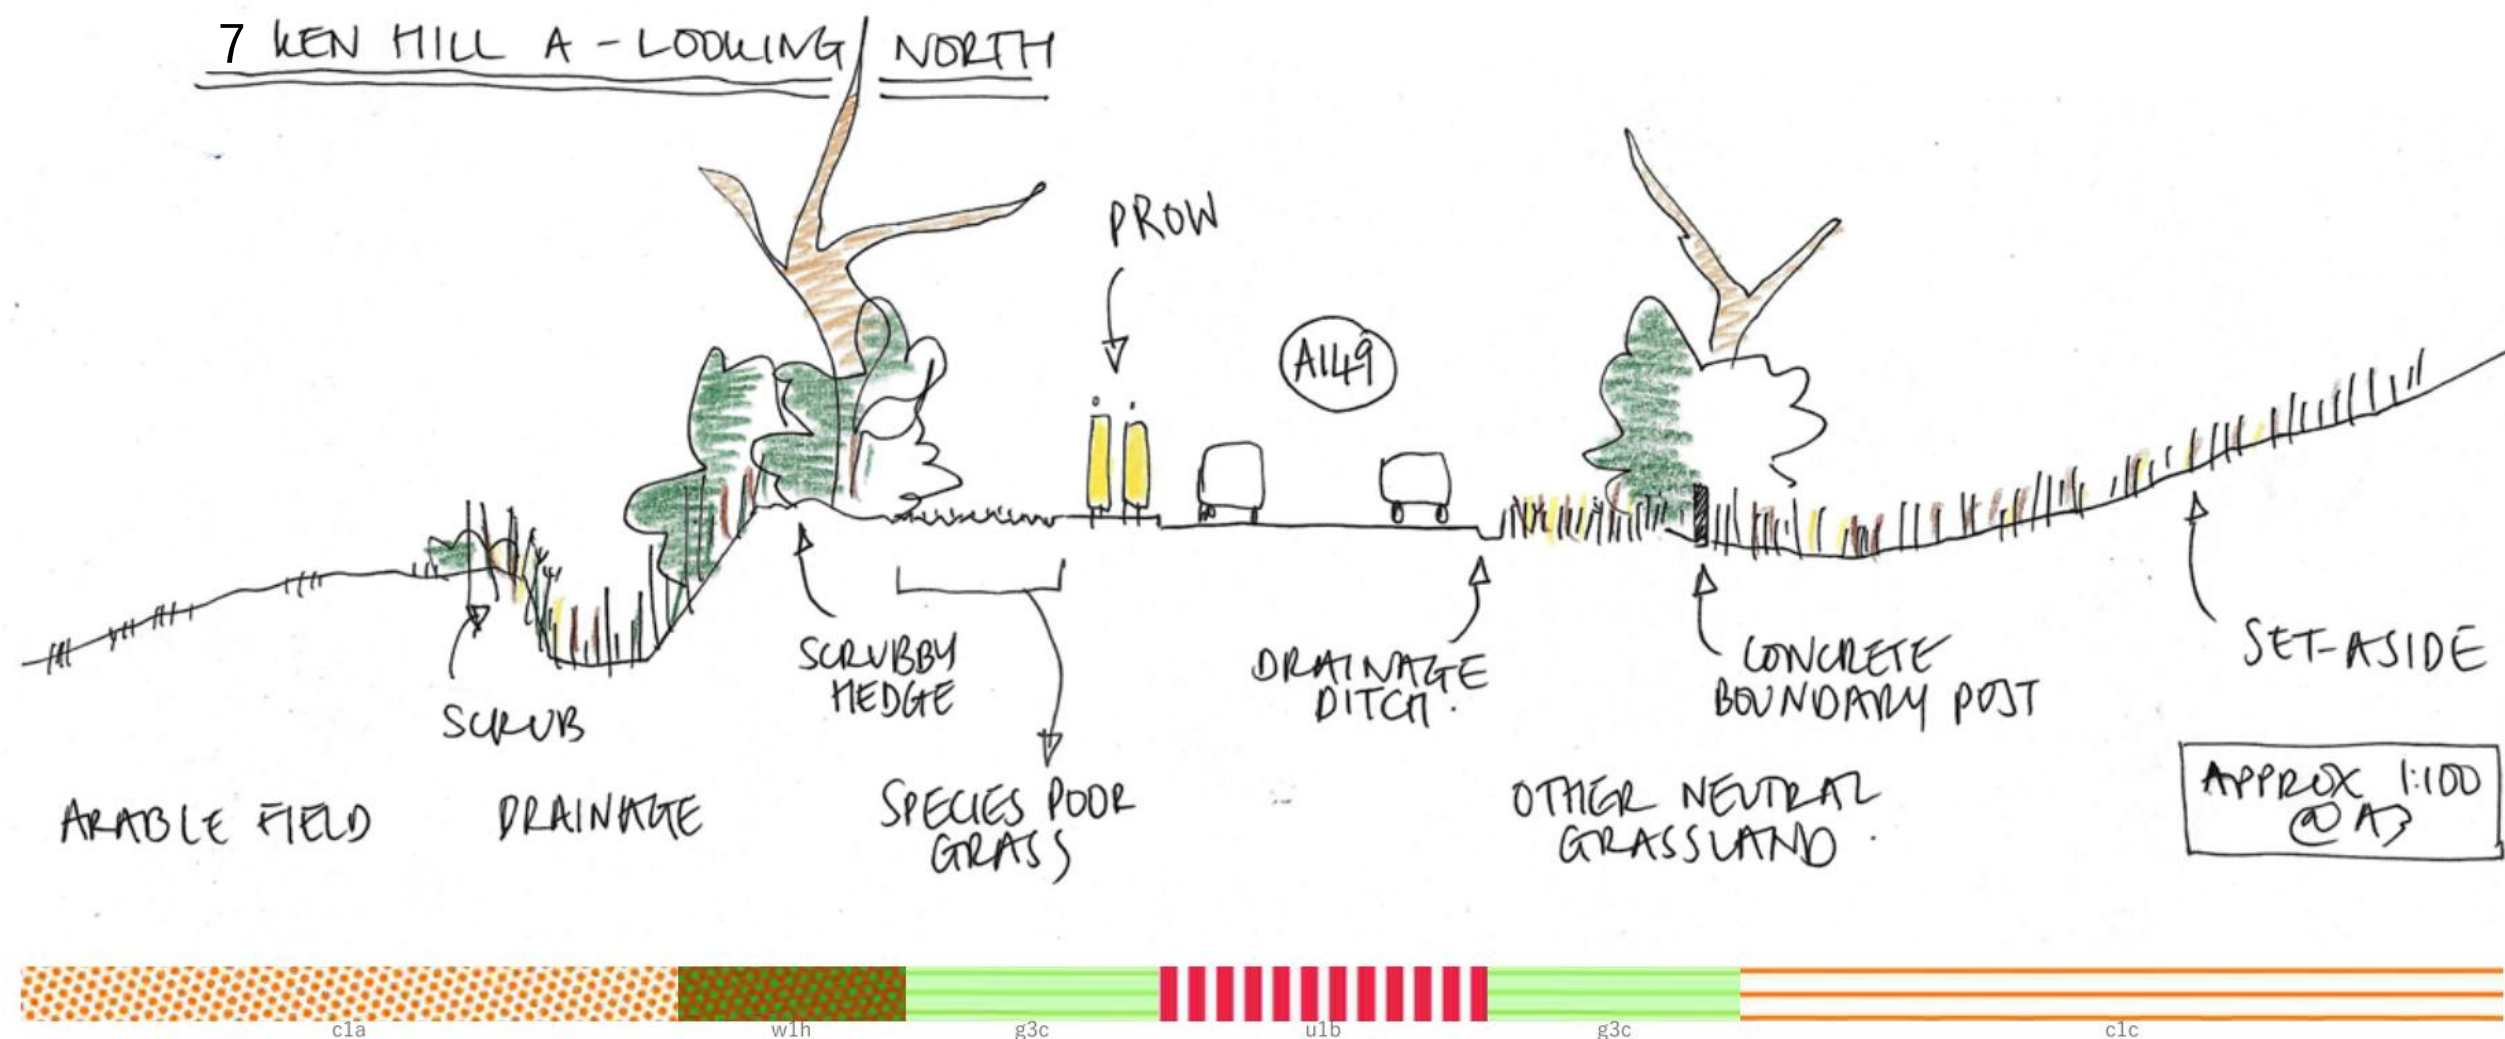 7 KEN HILL A - LOOKING NORTH
PROW
A149
SCRUB
SCRUBBY
HEDGE
DRAINAGE
DITCH.
CONCRETE
BOUNDARY POST
SET-ASIDE
ARABLE FIELD
DRAINAGE
SPECIES POOR
GRASS
OTHER NEUTRAL
GRASSLAND.
APPROX 1:100
@ A3
c1a
w1h
g3c
u1b
g3c
c1c